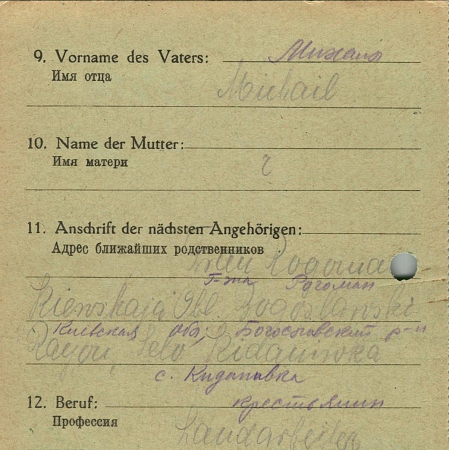 9. Vorname des Vaters: Михаил
Имя отца
Michail
10. Name der Mutter:
Имя матери
?
11. Anschrift der nächsten Angehörigen:
Адрес ближайших родственников
Frau Rogoman
Г-жа Рогоман
Kiewskaja Obl. Bogoslawski
Киевская обл; Богословский р-н
Rayon, Selo Kidanowka
с. Кидановка
12. Beruf: крестьянин
Профессия
Landarbeiter